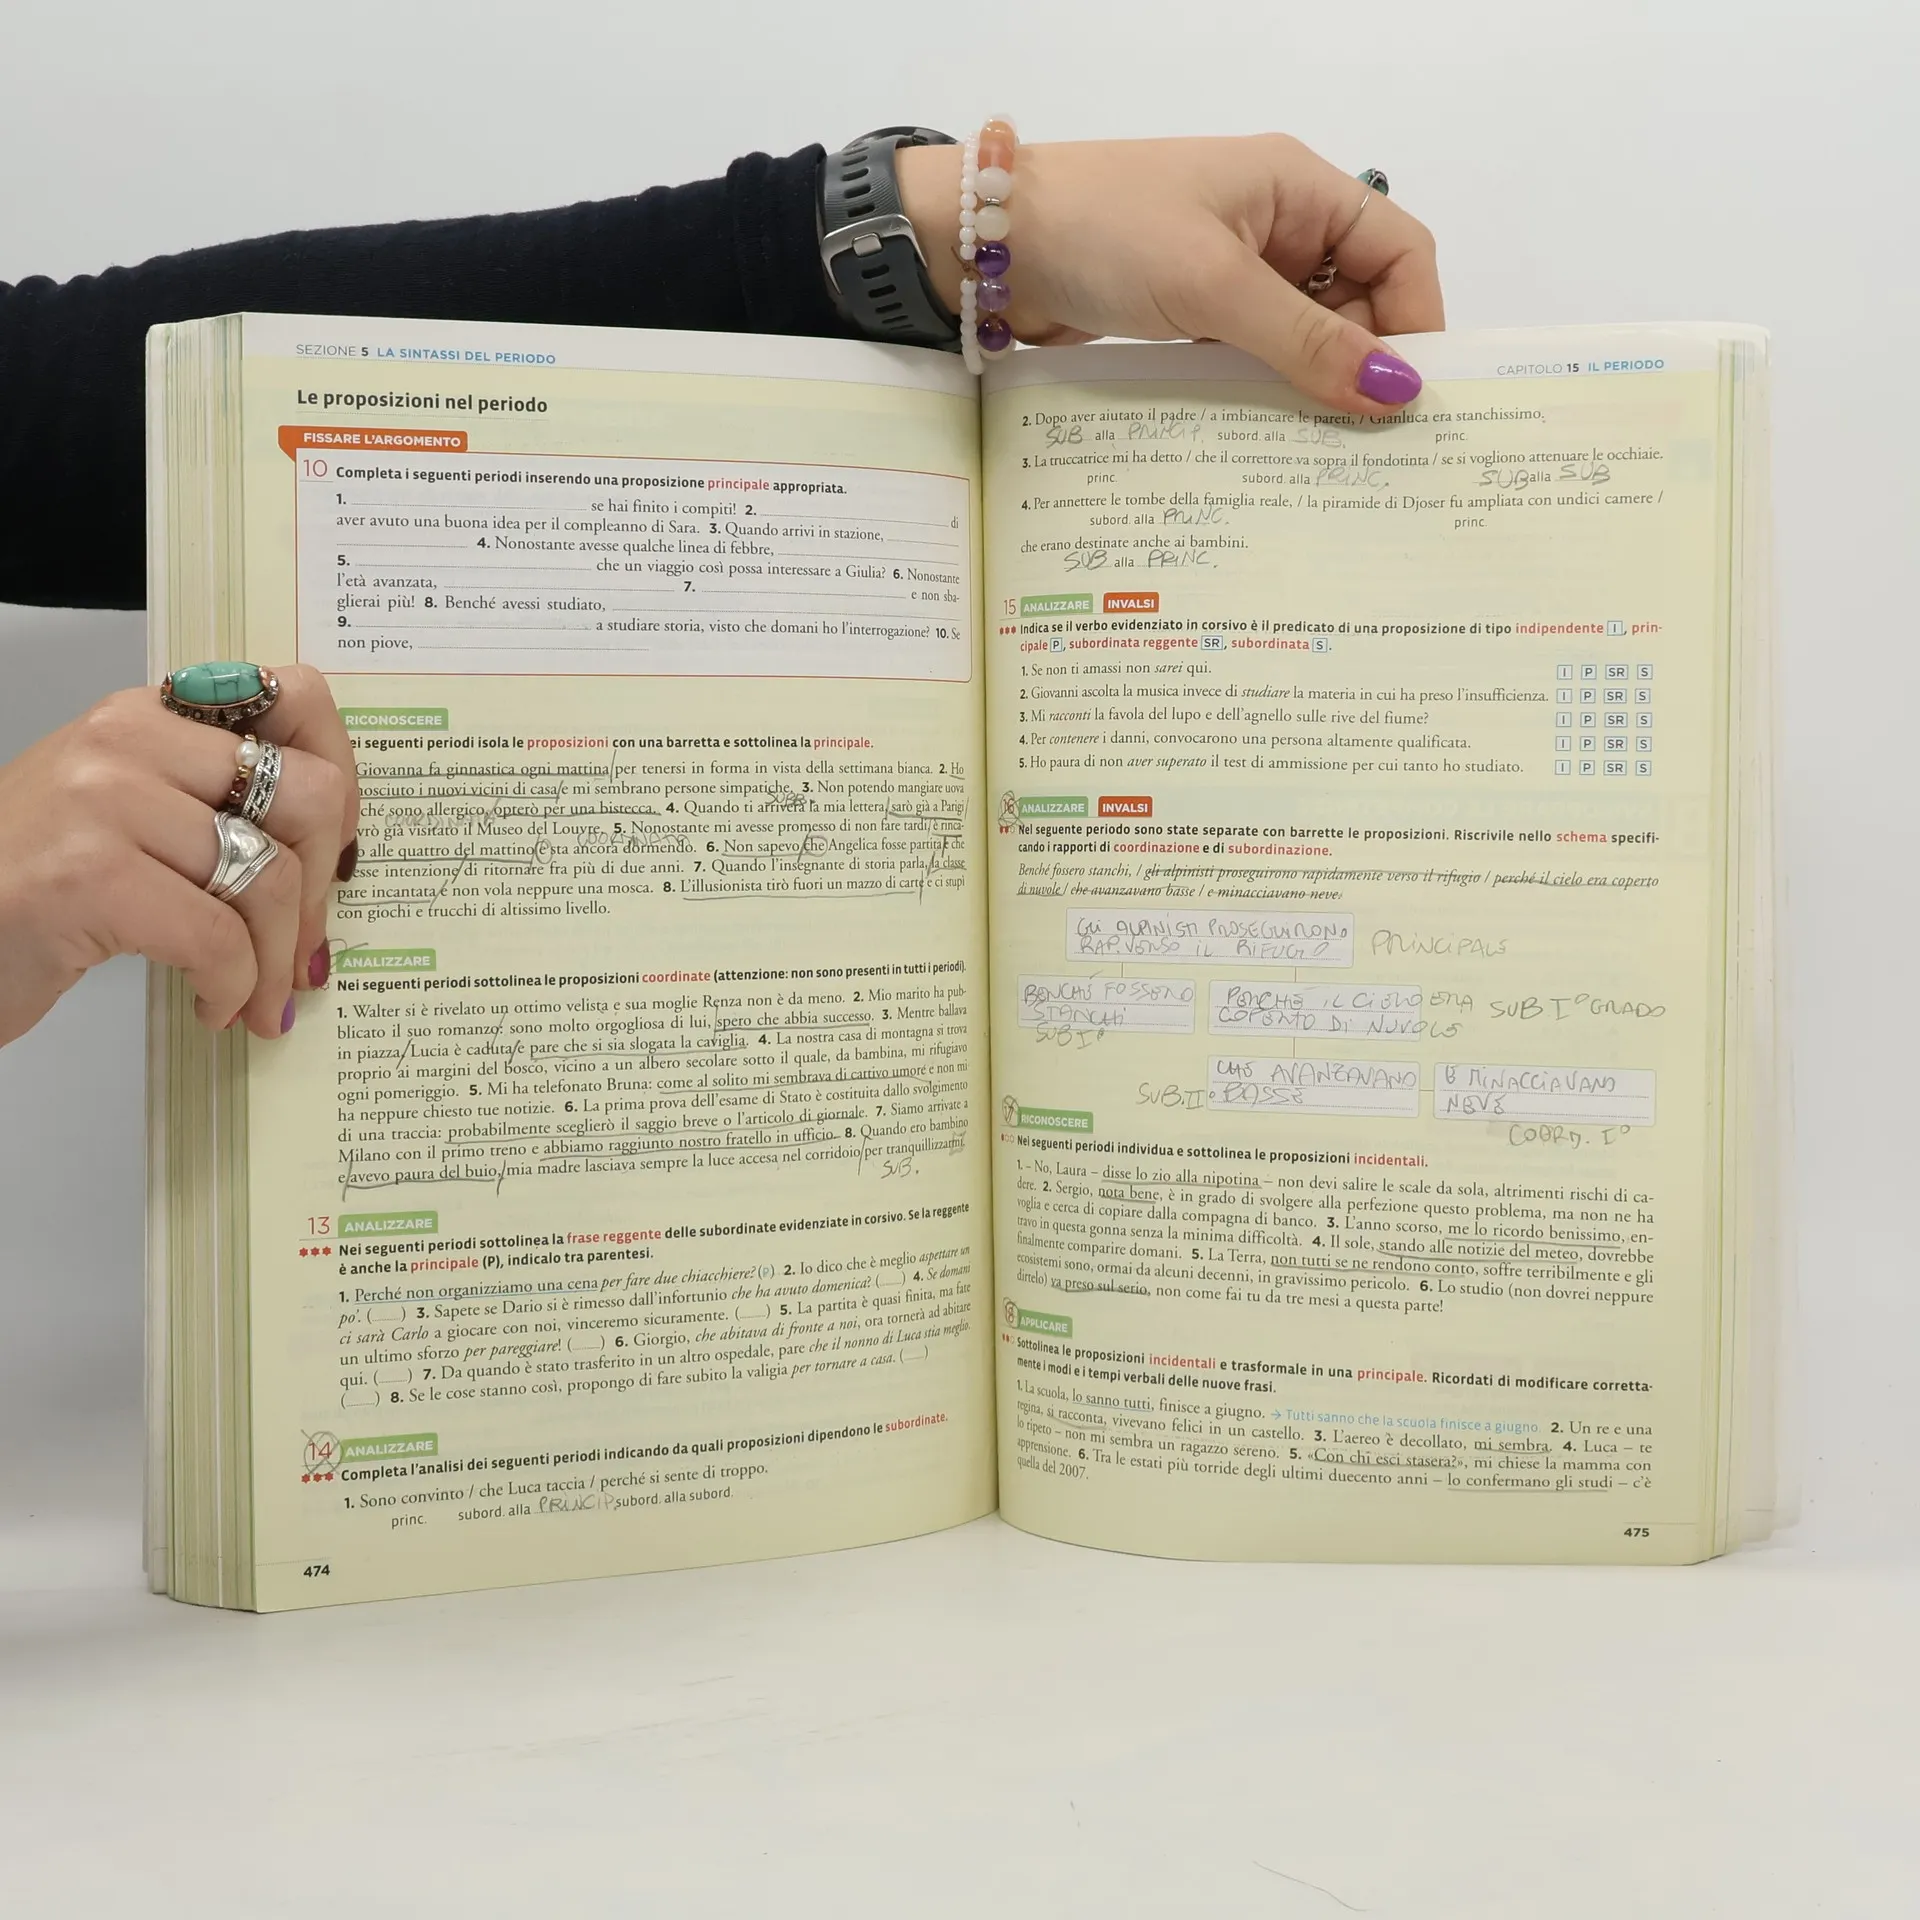 SEZIONE 5 LA SINTASSI DEL PERIODO
Le proposizioni nel periodo
FISSARE L'ARGOMENTO
10 Completa i seguenti periodi inserendo una proposizione principale appropriata.
1. se hai finito i compiti! 2. di
aver avuto una buona idea per il compleanno di Sara. 3. Quando arrivi in stazione,
4. Nonostante avesse qualche linea di febbre,
5. che un viaggio così possa interessare a Giulia? 6. Nonostante
l'età avanzata, 7. e non sba-
glierai più! 8. Benché avessi studiato,
9. a studiare storia, visto che domani ho l'interrogazione? 10. Se
non piove,
RICONOSCERE
ei seguenti periodi isola le proposizioni con una barretta e sottolinea la principale.
Giovanna fa ginnastica ogni mattina/per tenersi in forma in vista della settimana bianca. 2. Ho
nosciuto i nuovi vicini di casa/e mi sembrano persone simpatiche. 3. Non potendo mangiare uova
ché sono allergico, opterò per una bistecca. 4. Quando ti arriverà la mia lettera/sarò già a Parigi
COORDINATA
vrò già visitato il Museo del Louvre. 5. Nonostante mi avesse promesso di non fare tardi/è rinca-
COORDINATA
o alle quattro del mattino/e sta ancora dormendo. 6. Non sapevo/che Angelica fosse partita/e che
esse intenzione/di ritornare fra più di due anni. 7. Quando l'insegnante di storia parla,/la classe
pare incantata/e non vola neppure una mosca. 8. L'illusionista tirò fuori un mazzo di carte/e ci stupì
con giochi e trucchi di altissimo livello.
ANALIZZARE
Nei seguenti periodi sottolinea le proposizioni coordinate (attenzione: non sono presenti in tutti i periodi).
1. Walter si è rivelato un ottimo velista e sua moglie Renza non è da meno. 2. Mio marito ha pub-
blicato il suo romanzo: sono molto orgogliosa di lui, spero che abbia successo. 3. Mentre ballava
in piazza/Lucia è caduta/e pare che si sia slogata la caviglia. 4. La nostra casa di montagna si trova
proprio ai margini del bosco, vicino a un albero secolare sotto il quale, da bambina, mi rifugiavo
ogni pomeriggio. 5. Mi ha telefonato Bruna: come al solito mi sembrava di cattivo umore e non mi
ha neppure chiesto tue notizie. 6. La prima prova dell'esame di Stato è costituita dallo svolgimento
di una traccia: probabilmente sceglierò il saggio breve o l'articolo di giornale. 7. Siamo arrivate a
Milano con il primo treno e abbiamo raggiunto nostro fratello in ufficio. 8. Quando ero bambino
e/avevo paura del buio,/mia madre lasciava sempre la luce accesa nel corridoio/per tranquillizzarmi.
SUB.
13 ANALIZZARE
Nei seguenti periodi sottolinea la frase reggente delle subordinate evidenziate in corsivo. Se la reggente
è anche la principale (P), indicalo tra parentesi.
1. Perché non organizziamo una cena per fare due chiacchiere? (P) 2. Io dico che è meglio aspettare un
po'. (__) 3. Sapete se Dario si è rimesso dall'infortunio che ha avuto domenica? (__) 4. Se domani
ci sarà Carlo a giocare con noi, vinceremo sicuramente. (__) 5. La partita è quasi finita, ma fate
un ultimo sforzo per pareggiare! (__) 6. Giorgio, che abitava di fronte a noi, ora tornerà ad abitare
qui. (__) 7. Da quando è stato trasferito in un altro ospedale, pare che il nonno di Luca stia meglio.
(__) 8. Se le cose stanno così, propongo di fare subito la valigia per tornare a casa. (__)
14 ANALIZZARE
Completa l'analisi dei seguenti periodi indicando da quali proposizioni dipendono le subordinate.
1. Sono convinto / che Luca taccia / perché si sente di troppo.
princ. subord. alla PRINCIP. subord. alla subord.
474
CAPITOLO 15 IL PERIODO
2. Dopo aver aiutato il padre / a imbiancare le pareti, / Gianluca era stanchissimo.
SUB alla PRINCIP. subord. alla SUB. princ.
3. La truccatrice mi ha detto / che il correttore va sopra il fondotinta / se si vogliono attenuare le occhiaie.
princ. subord. alla PRINC. SUB alla SUB
4. Per annettere le tombe della famiglia reale, / la piramide di Djoser fu ampliata con undici camere /
subord. alla PRINC. princ.
che erano destinate anche ai bambini.
SUB alla PRINC.
15 ANALIZZARE INVALSI
Indica se il verbo evidenziato in corsivo è il predicato di una proposizione di tipo indipendente I, prin-
cipale P, subordinata reggente SR, subordinata S.
1. Se non ti amassi non sarei qui. I P SR S
2. Giovanni ascolta la musica invece di studiare la materia in cui ha preso l'insufficienza. I P SR S
3. Mi racconti la favola del lupo e dell'agnello sulle rive del fiume? I P SR S
4. Per contenere i danni, convocarono una persona altamente qualificata. I P SR S
5. Ho paura di non aver superato il test di ammissione per cui tanto ho studiato. I P SR S
16 ANALIZZARE INVALSI
Nel seguente periodo sono state separate con barrette le proposizioni. Riscrivile nello schema specifi-
cando i rapporti di coordinazione e di subordinazione.
Benché fossero stanchi, / gli alpinisti proseguirono rapidamente verso il rifugio / perché il cielo era coperto
di nuvole / che avanzavano basse / e minacciavano neve.
GLI ALPINISTI PROSEGUIRONO
RAP. VERSO IL RIFUGIO PRINCIPALE
BENCHÉ FOSSERO
STANCHI
SUB I°
PERCHÉ IL CIELO ERA SUB I° GRADO
COPERTO DI NUVOLE
CHE AVANZAVANO
SUB. II° BASSE
E MINACCIAVANO
NEVE
COORD. I°
17 RICONOSCERE
Nei seguenti periodi individua e sottolinea le proposizioni incidentali.
1. – No, Laura – disse lo zio alla nipotina – non devi salire le scale da sola, altrimenti rischi di ca-
dere. 2. Sergio, nota bene, è in grado di svolgere alla perfezione questo problema, ma non ne ha
voglia e cerca di copiare dalla compagna di banco. 3. L'anno scorso, me lo ricordo benissimo, en-
travo in questa gonna senza la minima difficoltà. 4. Il sole, stando alle notizie del meteo, dovrebbe
finalmente comparire domani. 5. La Terra, non tutti se ne rendono conto, soffre terribilmente e gli
ecosistemi sono, ormai da alcuni decenni, in gravissimo pericolo. 6. Lo studio (non dovrei neppure
dirtelo) va preso sul serio, non come fai tu da tre mesi a questa parte!
18 APPLICARE
Sottolinea le proposizioni incidentali e trasformale in una principale. Ricordati di modificare corretta-
mente i modi e i tempi verbali delle nuove frasi.
1. La scuola, lo sanno tutti, finisce a giugno. → Tutti sanno che la scuola finisce a giugno. 2. Un re e una
regina, si racconta, vivevano felici in un castello. 3. L'aereo è decollato, mi sembra. 4. Luca – te
lo ripeto – non mi sembra un ragazzo sereno. 5. «Con chi esci stasera?», mi chiese la mamma con
apprensione. 6. Tra le estati più torride degli ultimi duecento anni – lo confermano gli studi – c'è
quella del 2007.
475